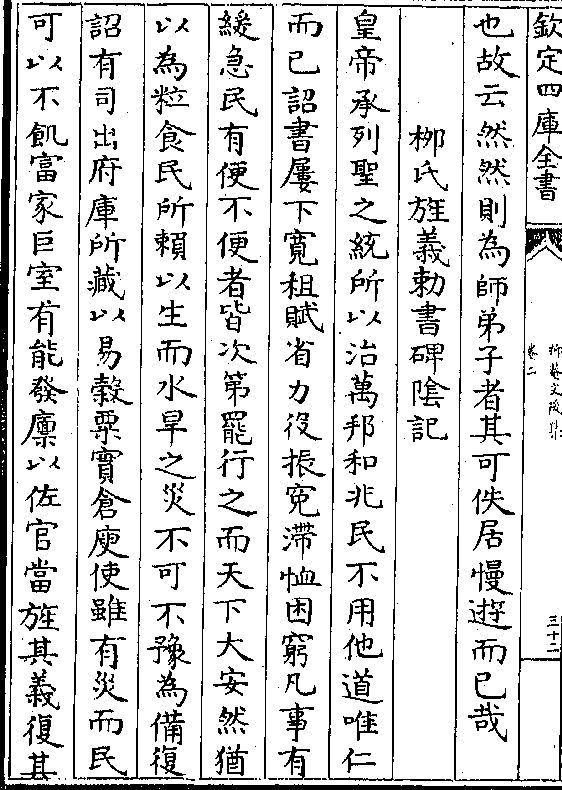 欽定四庫全書
抑菴文後集
卷二
三十二
也故云然然則為師弟子者其可佚居慢遊而已哉
栁氏旌義勅書碑陰記
皇帝承列聖之統所以治萬邦和兆民不用他道唯仁
而已詔書屢下寛租賦省力役振寃滯恤困窮凡事有
緩急民有便不便者皆次第罷行之而天下大安然猶
以為粒食民所賴以生而水旱之災不可不豫為備復
詔有司出府庫所藏以易榖粟實倉庾使雖有災而民
可以不飢富家巨室有能發廩以佐官當旌其義復其